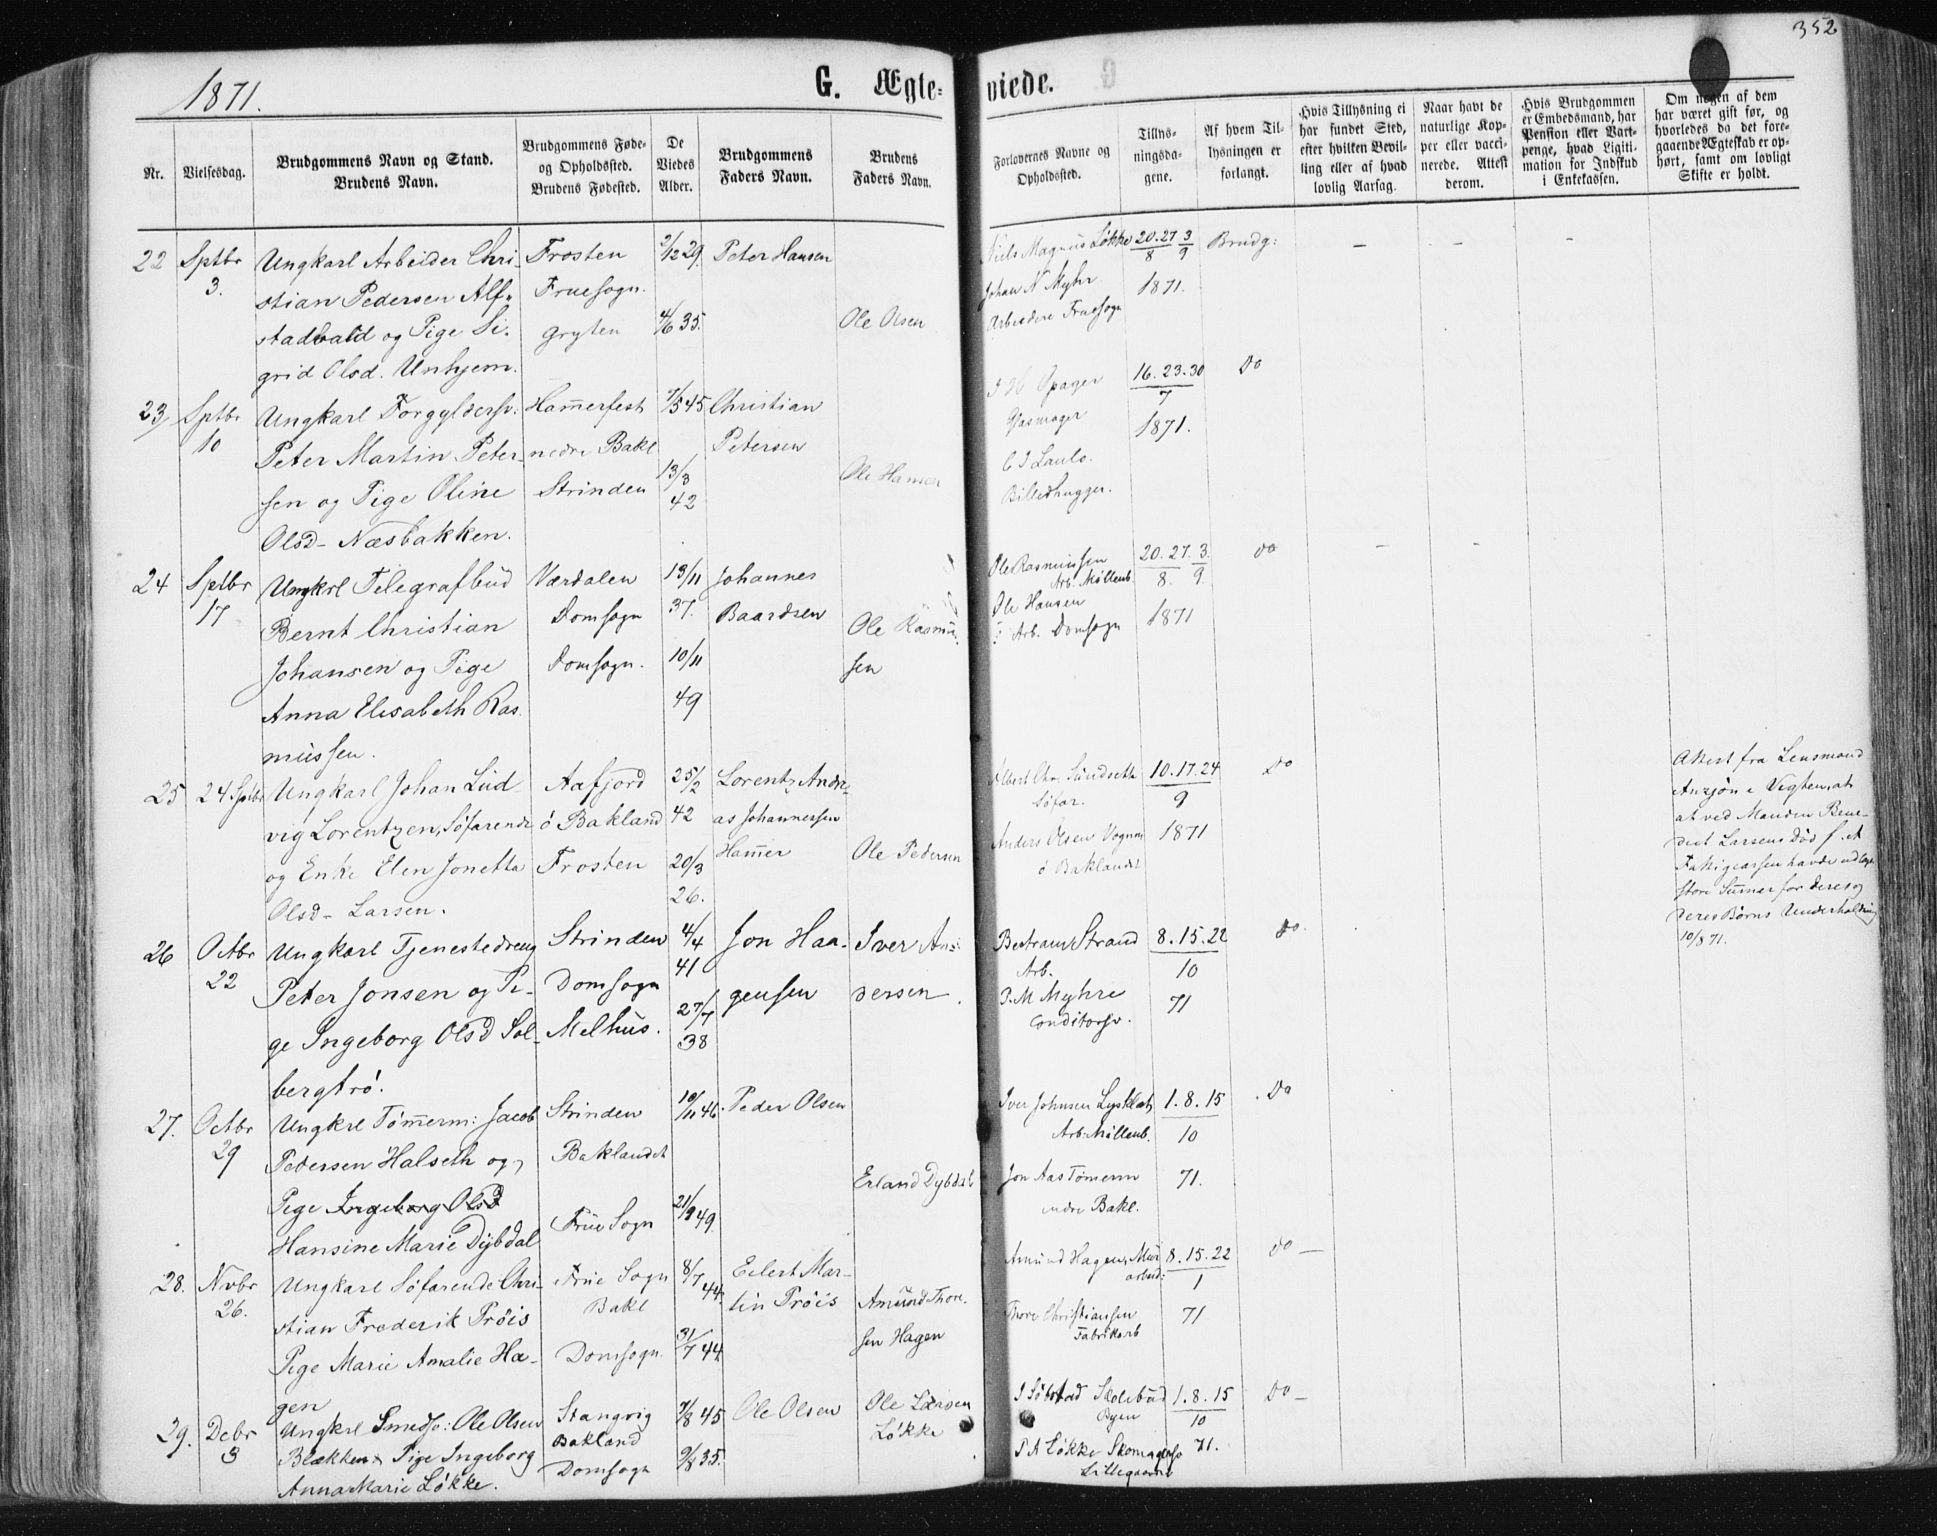 352
1871.
G. Ægte-
viede.
Nr.
Vielsesdag.
Brudgommens Navn og Stand.
Brudens Navn.
Brudgommens Føde-
og Opholdssted.
Brudens Fødested.
De
Viedes
Alder.
Brudgommens
Faders Navn.
Brudens
Faders Navn.
Forlovernes Navne og
Opholdssted.
Tillys-
ningsda-
gene.
Af hvem Til-
lysningen er
forlangt.
Hvis Tillysning ei
har fundet Sted,
efter hvilken Bevil-
ling eller af hvad
lovlig Aarsag.
Naar havt de
naturlige Kop-
per eller vacci-
nerede. Attest
derom.
Hvis Brudgommen
er Embedsmand, har
Pension eller Vart-
penge, hvad Ligiti-
mation for Indskud
i Enkekassen.
Om nogen af dem
har været gift før, og
hvorledes da det fore-
gaaende Ægteskab er op-
hørt, samt om lovligt
Skifte er holdt.
22 Sptbr
3.
Ungkarl Arbeider Chri-
stian Pedersen Alf-
stadvald og Pige Si-
grid Olsd. Unhjem.
Frosten
Fruesogn.
Gryten
2/12 29.
4/6 35.
Peter Hansen
Ole Olsen
Niels Magnus Løkke
Johan N Myhr
Arbeidere Fruesogn
20.27 3
8 9
1871.
Brudg:
23 Sptbr
10
Ungkarl Forgyldersv.
Peter Martin Peter-
sen og Pige Oline
Olsd- Næsbakken.
Hamerfest
nedre Bakl
Strinden
7/5 45
13/3
42
Christian
Petersen
Ole Hansen
Glasmager
Billedhugger.
16.23.30
7
1871.
Do
24 Sptbr
17
Ungkrl Telegrafbud
Bernt Christian
Johansen og Pige
Anna Elisabeth Ras
mussen.
Værdalen
Domsogn
Domsogn.
13/11
37.
10/11
49
Johannes
Baardsen
Ole Rasmu-
sen
Ole Rasmussen
Arb. Møllenb.
Ole Hansen
Arb. Domsogn
20.27. 3.
8. 9.
1871
Do
25 24 Sptbr
Ungkarl Johan Lud
vig Lorentzen, Søfarende
og Enke Elen Jonetta
Olsd- Larsen.
Aafjord
ö Bakland
Frosten
25/2
42
20/3
26.
Lorentz Andre-
as Johannessen
Hamer
Ole Pedersen
Albert Chr. Sundseth
Søfar.
Anders Olsen Vognm
ö Baklandet
10.17.24
9
1871
Do
Attest fra Lensmand
at ved Manden Bene-
dict Larsens Død f. et
store Sumer for deres og
deres Børns Underholdning
10/8 71.
26 Octbr
22
Ungkarl Tjenestedreng
Peter Jonsen og Pi-
ge Ingeborg Olsd Sol-
bergtrø.
Strinden
Domsogn
Melhus.
4/4
41
27/7
38
Jon Haa-
gensen
Iver An-
dersen
Bertram Strand
Arb.
P. M Myhre
Conditorsv.
8.15.22
10
71
Do.
27. Octbr
29
Ungkrl Tømerm: Jacob
Pedersen Halseth og
Pige Ingeborg Olsd
Hansine Marie Dybdal
Strinden
Baklandet
Frue Sogn
10/11 46.
21/9 49.
Peder Olsen
Erland Dybdal
Iver Johnsen Lysklet
Arb. Møllenb.
Jon Aas Tømerm
nedre Bakl.
1.8.15
10
71.
Do
28. Novbr
26.
Ungkarl Søfarende Chri-
stian Frederik Prøis
Pige Marie Amalie Ha-
gen
Frue Sogn
Bakl
Domsogn
8/7 44.
31/7 44.
Eilert Mar-
tin Prøis
Amund Thore-
sen Hagen
Amund Hagen, Mur
arbeid:
Thore Christiansen
Fabrikarb
8.15.22
1
71
Do —
29. Debr
3
Ungkrl Smedsv: Ole Olsen
Blækken & Pige Ingeborg
Anna Marie Løkke.
Stangvig
Bakland
Domsogn
7/8 45
9/8 35.
Ole Olsen
Ole Larsen
Løkke
Byen
P A Løkke Skomagersv
Lillegaarden
1.8.15
10
71.
Do —